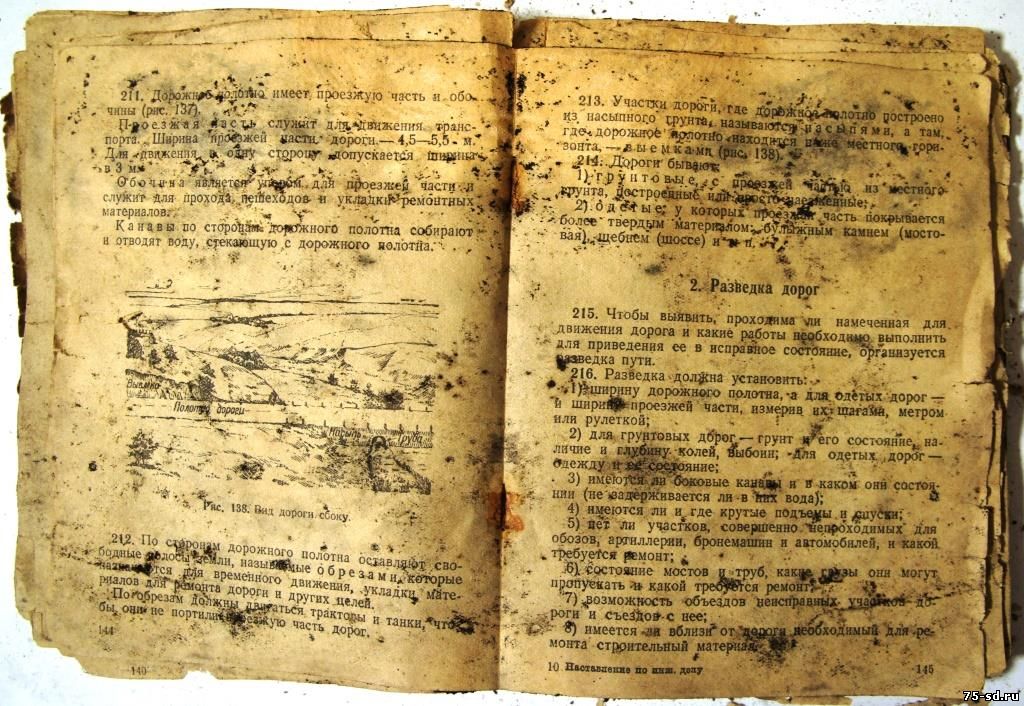 211. Дорожное полотно имеет проезжую часть и обо-
чины (рис. 137).
Проезжая часть служит для движения транс-
порта. Ширина проезжей части дороги — 4,5—5,5 м.
Для движения в одну сторону допускается ширина
в 3 м.
Обочина является упором для проезжей части и
служит для прохода пешеходов и укладки ремонтных
материалов.
Канавы по сторонам дорожного полотна собирают
и отводят воду, стекающую с дорожного полотна.
Выемка
Полотно дороги
Насыпь
Труба
Рис. 138. Вид дороги сбоку.
212. По сторонам дорожного полотна оставляют сво-
бодные полосы земли, называемые обрезами, которые
назначаются для временного движения, укладки мате-
риалов для ремонта дороги и других целей.
По обрезам должны двигаться тракторы и танки, что-
бы они не портили проезжую часть дорог.
144
140
213. Участки дороги, где дорожное полотно построено
из насыпного грунта, называются насыпями, а там,
где дорожное полотно находится ниже местного гори-
зонта, — выемками (рис. 138).
214. Дороги бывают:
1) грунтовые, с проезжей частью из местного
грунта, построенные или просто наезженные;
2) одетые, у которых проезжая часть покрывается
более твердым материалом: булыжным камнем (мосто-
вая), щебнем (шоссе) и т. п.
2. Разведка дорог
215. Чтобы выявить, проходима ли намеченная для
движения дорога и какие работы необходимо выполнить
для приведения ее в исправное состояние, организуется
разведка пути.
216. Разведка должна установить:
1) ширину дорожного полотна, а для одетых дорог —
и ширину проезжей части, измерив их шагами, метром
или рулеткой;
2) для грунтовых дорог — грунт и его состояние, на-
личие и глубину колей, выбоин; для одетых дорог —
одежду и ее состояние;
3) имеются ли боковые канавы и в каком они состоя-
нии (не задерживается ли в них вода);
4) имеются ли и где крутые подъемы и спуски;
5) нет ли участков, совершенно непроходимых для
обозов, артиллерии, бронемашин и автомобилей, и какой
требуется ремонт;
6) состояние мостов и труб, какие грузы они могут
пропускать и какой требуется ремонт;
7) возможность объездов неисправных участков до-
роги и съездов с нее;
8) имеется ли вблизи от дороги необходимый для ре-
монта строительный материал.
10 Наставление по инж. делу
145
75-sd.ru